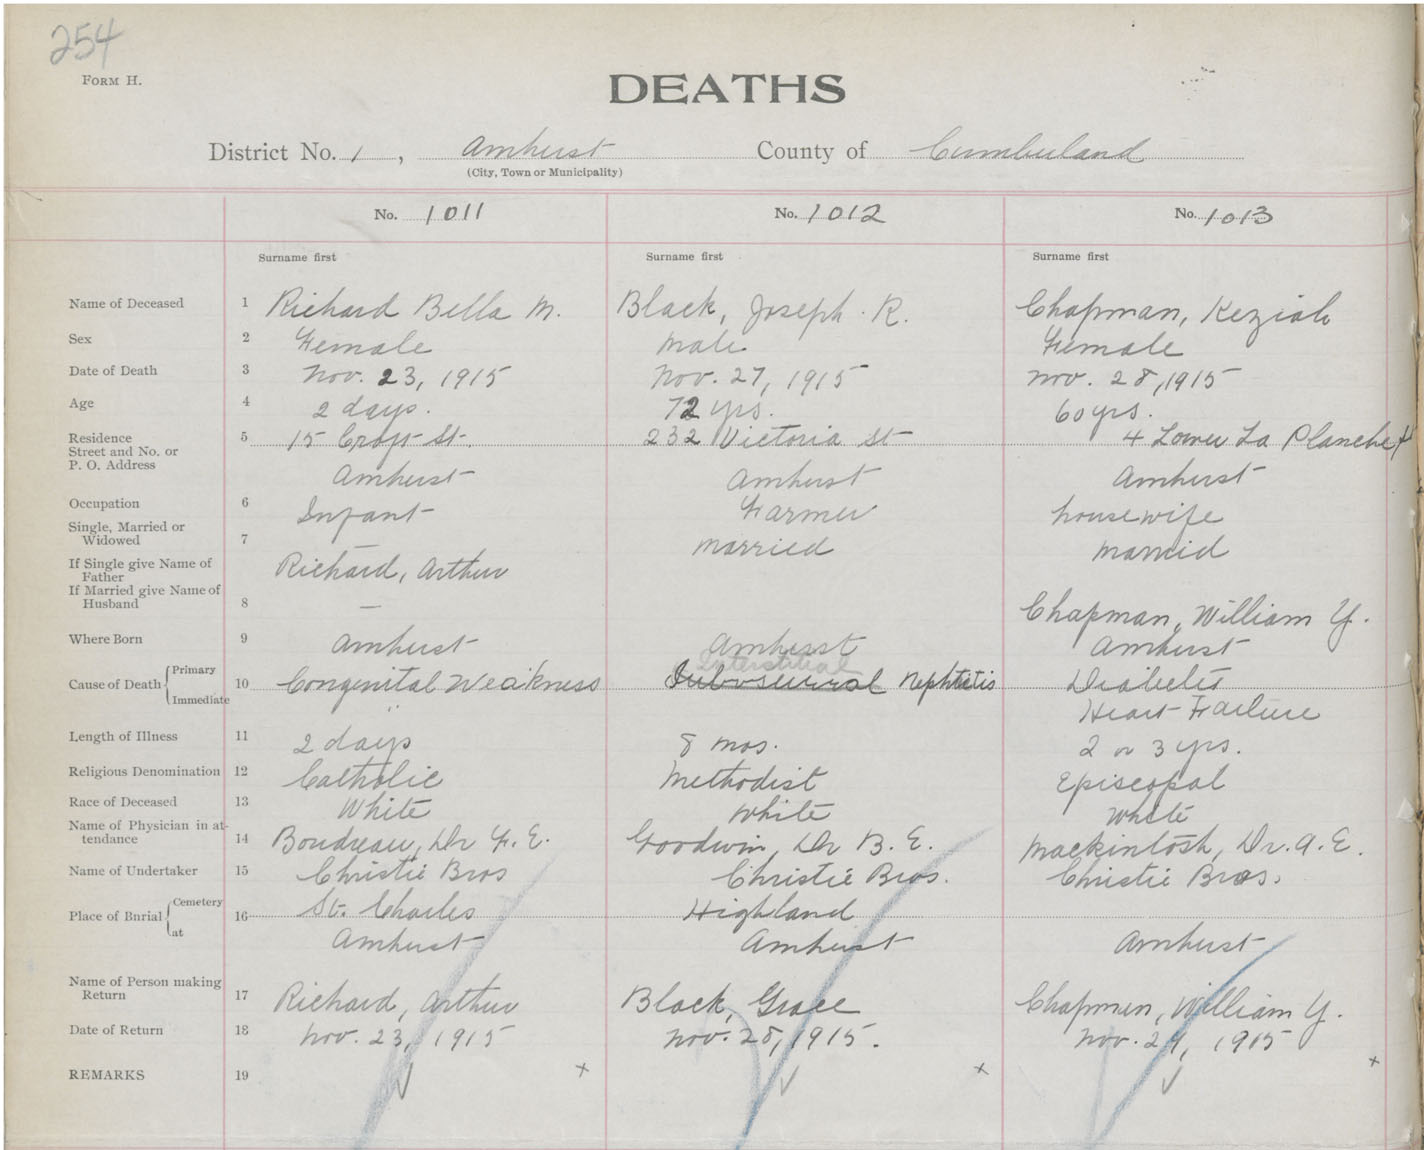 254
FORM H.
DEATHS
District No. 1, Amherst County of Cumberland
(City, Town or Municipality)
No. 1011 No. 1012 No. 1013
Surname first Surname first Surname first
Name of Deceased 1 Richard Bella M. Black, Joseph. R. Chapman, Keziah
Sex 2 Female Male Female
Date of Death 3 Nov. 23, 1915 Nov. 27, 1915 Nov. 28, 1915
Age 4 2 days. 72 yrs. 60 yrs.
Residence Street and No. or P. O. Address 5 15 Croft St. 232 Victoria St 4 Lower La Planche
Amherst Amherst Amherst
Occupation 6 Infant Farmer housewife
Single, Married or Widowed 7 — married married
If Single give Name of Father Richard, Arthur
If Married give Name of Husband 8 — Chapman, William Y.
Where Born 9 Amherst Amherst Amherst
Interstitial
Cause of Death { Primary 10 Congenital Weakness Nephritis Diabetes
Immediate " Heart Failure
Length of Illness 11 2 days 8 mos. 2 or 3 yrs.
Religious Denomination 12 Catholic Methodist Episcopal
Race of Deceased 13 White White White
Name of Physician in attendance 14 Boudreau, Dr F. E. Goodwin, Dr B. E. Mackintosh, Dr. A. E.
Name of Undertaker 15 Christie Bros Christie Bros. Christie Bros.
Place of Burial { Cemetery 16 St. Charles Highland
at Amherst Amherst Amherst
Name of Person making Return 17 Richard, Arthur Black, Grace Chapman, William Y.
Date of Return 18 Nov. 23, 1915 Nov. 28, 1915. Nov. 29, 1915
REMARKS 19 x x x